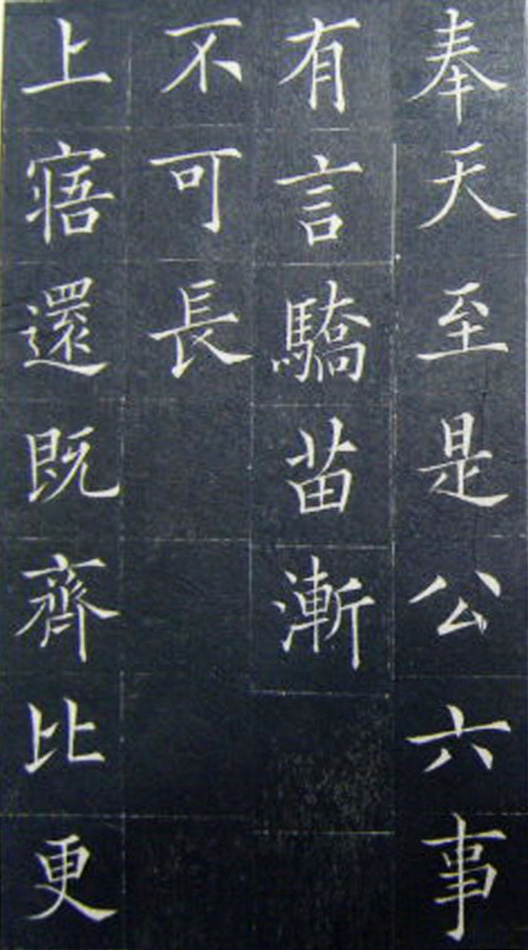 奉天至是公六事
有言驕苗漸
不可長
上寤還既齊比更